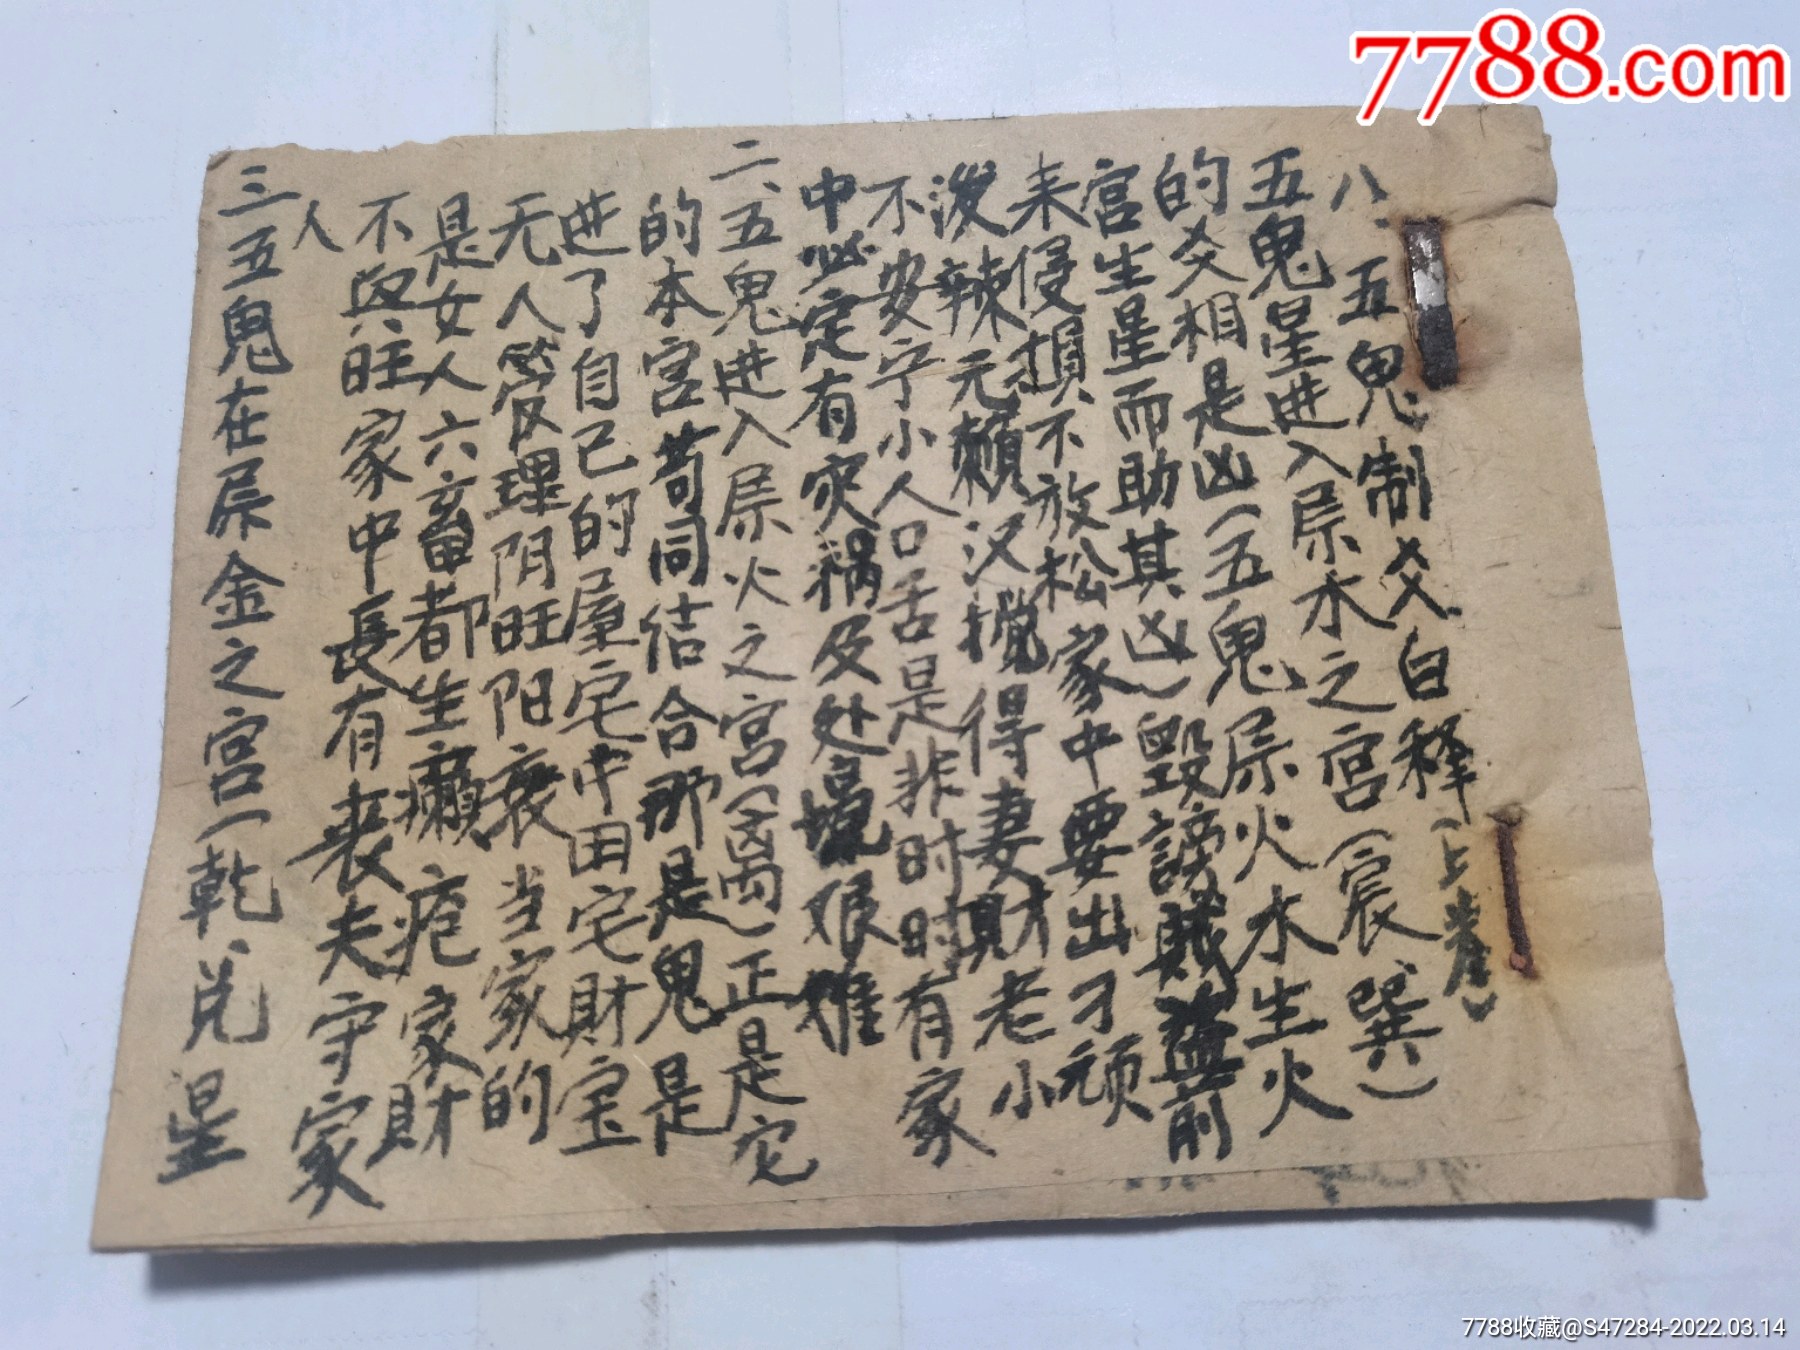 7788.com
八、五鬼制爻白释(上卷)
五鬼星进入屌水之宫(宸、巽)
的爻相是凶(五鬼屌火水生火
宫生星而助其凶)毁謗賊盗前
来侵損不放松家中要出刁顽
泼辣元赖汉搅得妻財老小
不安宁小人口舌是非时时有家
中必定有灾祸及处境艰难
二、五鬼进入屌火之宫(离)正是它
的本宫苟同佶合那是鬼是
进了自己的屋宅中田宅財宝
无人管理阴旺阳衰当家的
是女人六畜都生癞疮家財
不興旺家中長有丧夫守家
人
三五鬼在屌金之宫(乾兑星
7788收藏@S47284-2022.03.14